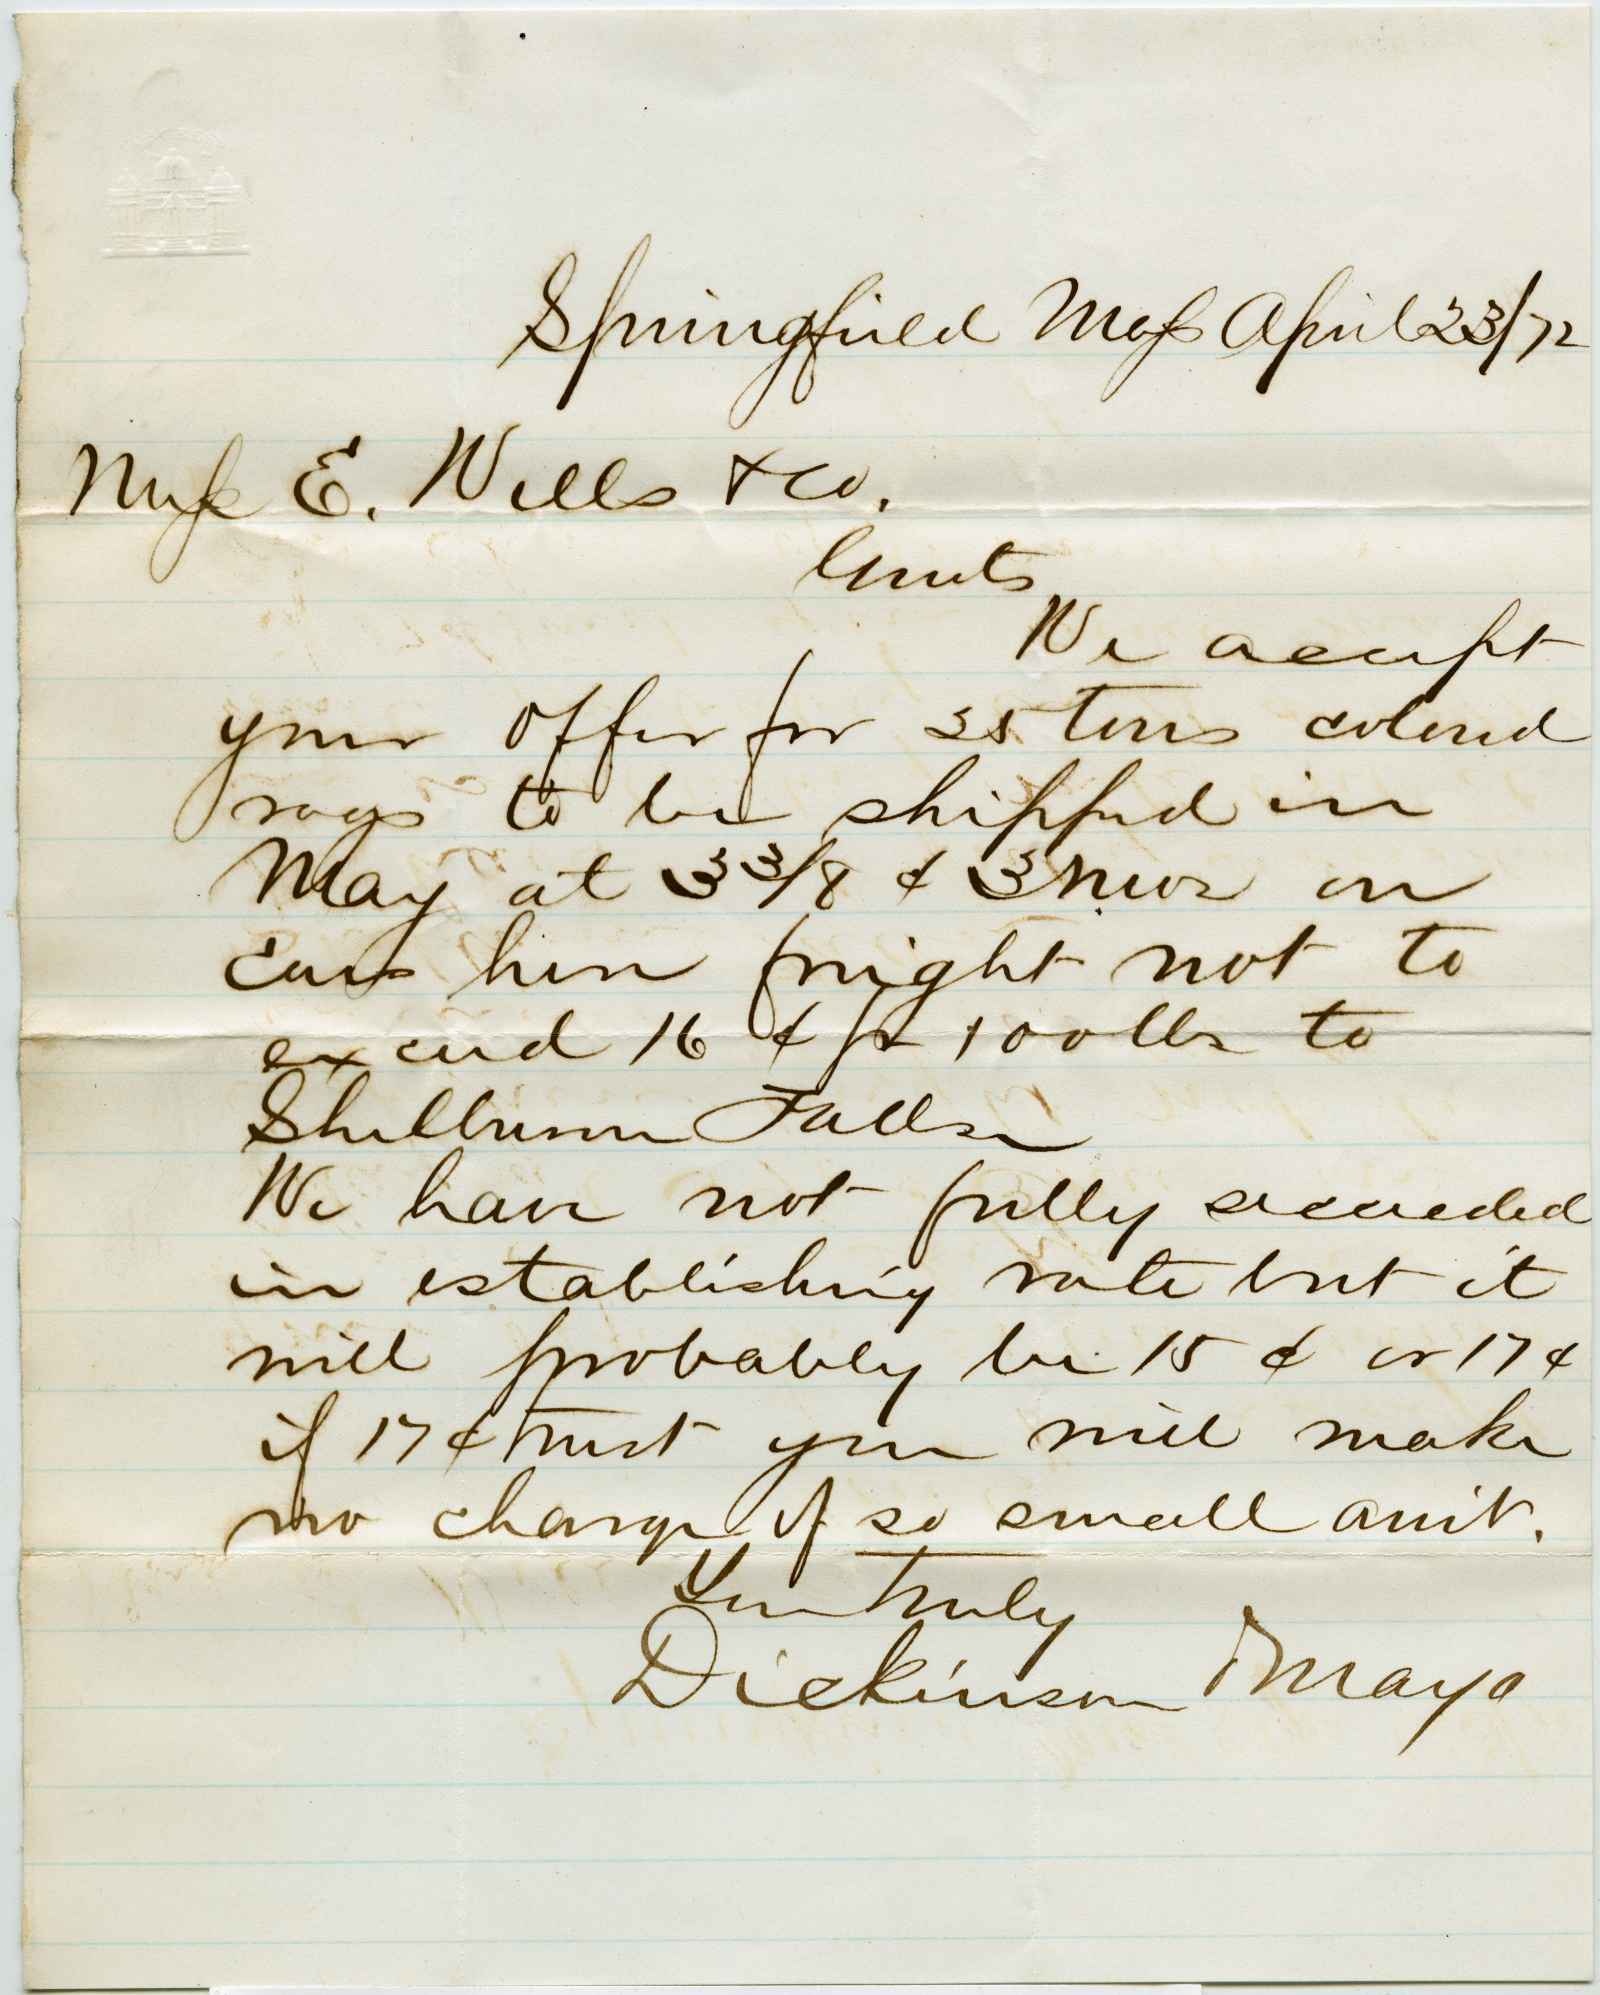 Springfield Mass April 23/72
Mess E. Wells & Co.
Gents
We accept
your offer for 25 tons colored
rags to be shipped in
May at 3 3/8 ¢ 3 mos on
cars here freight not to
exceed 16 ¢ pr 100 lbs to
Shelburne Falls
We have not fully succeeded
in establishing rate but it
will probably be 15 ¢ or 17 ¢
if 17 ¢ trust you will make
no charge of so small amt.
Yours truly
Dickinson & Mayo